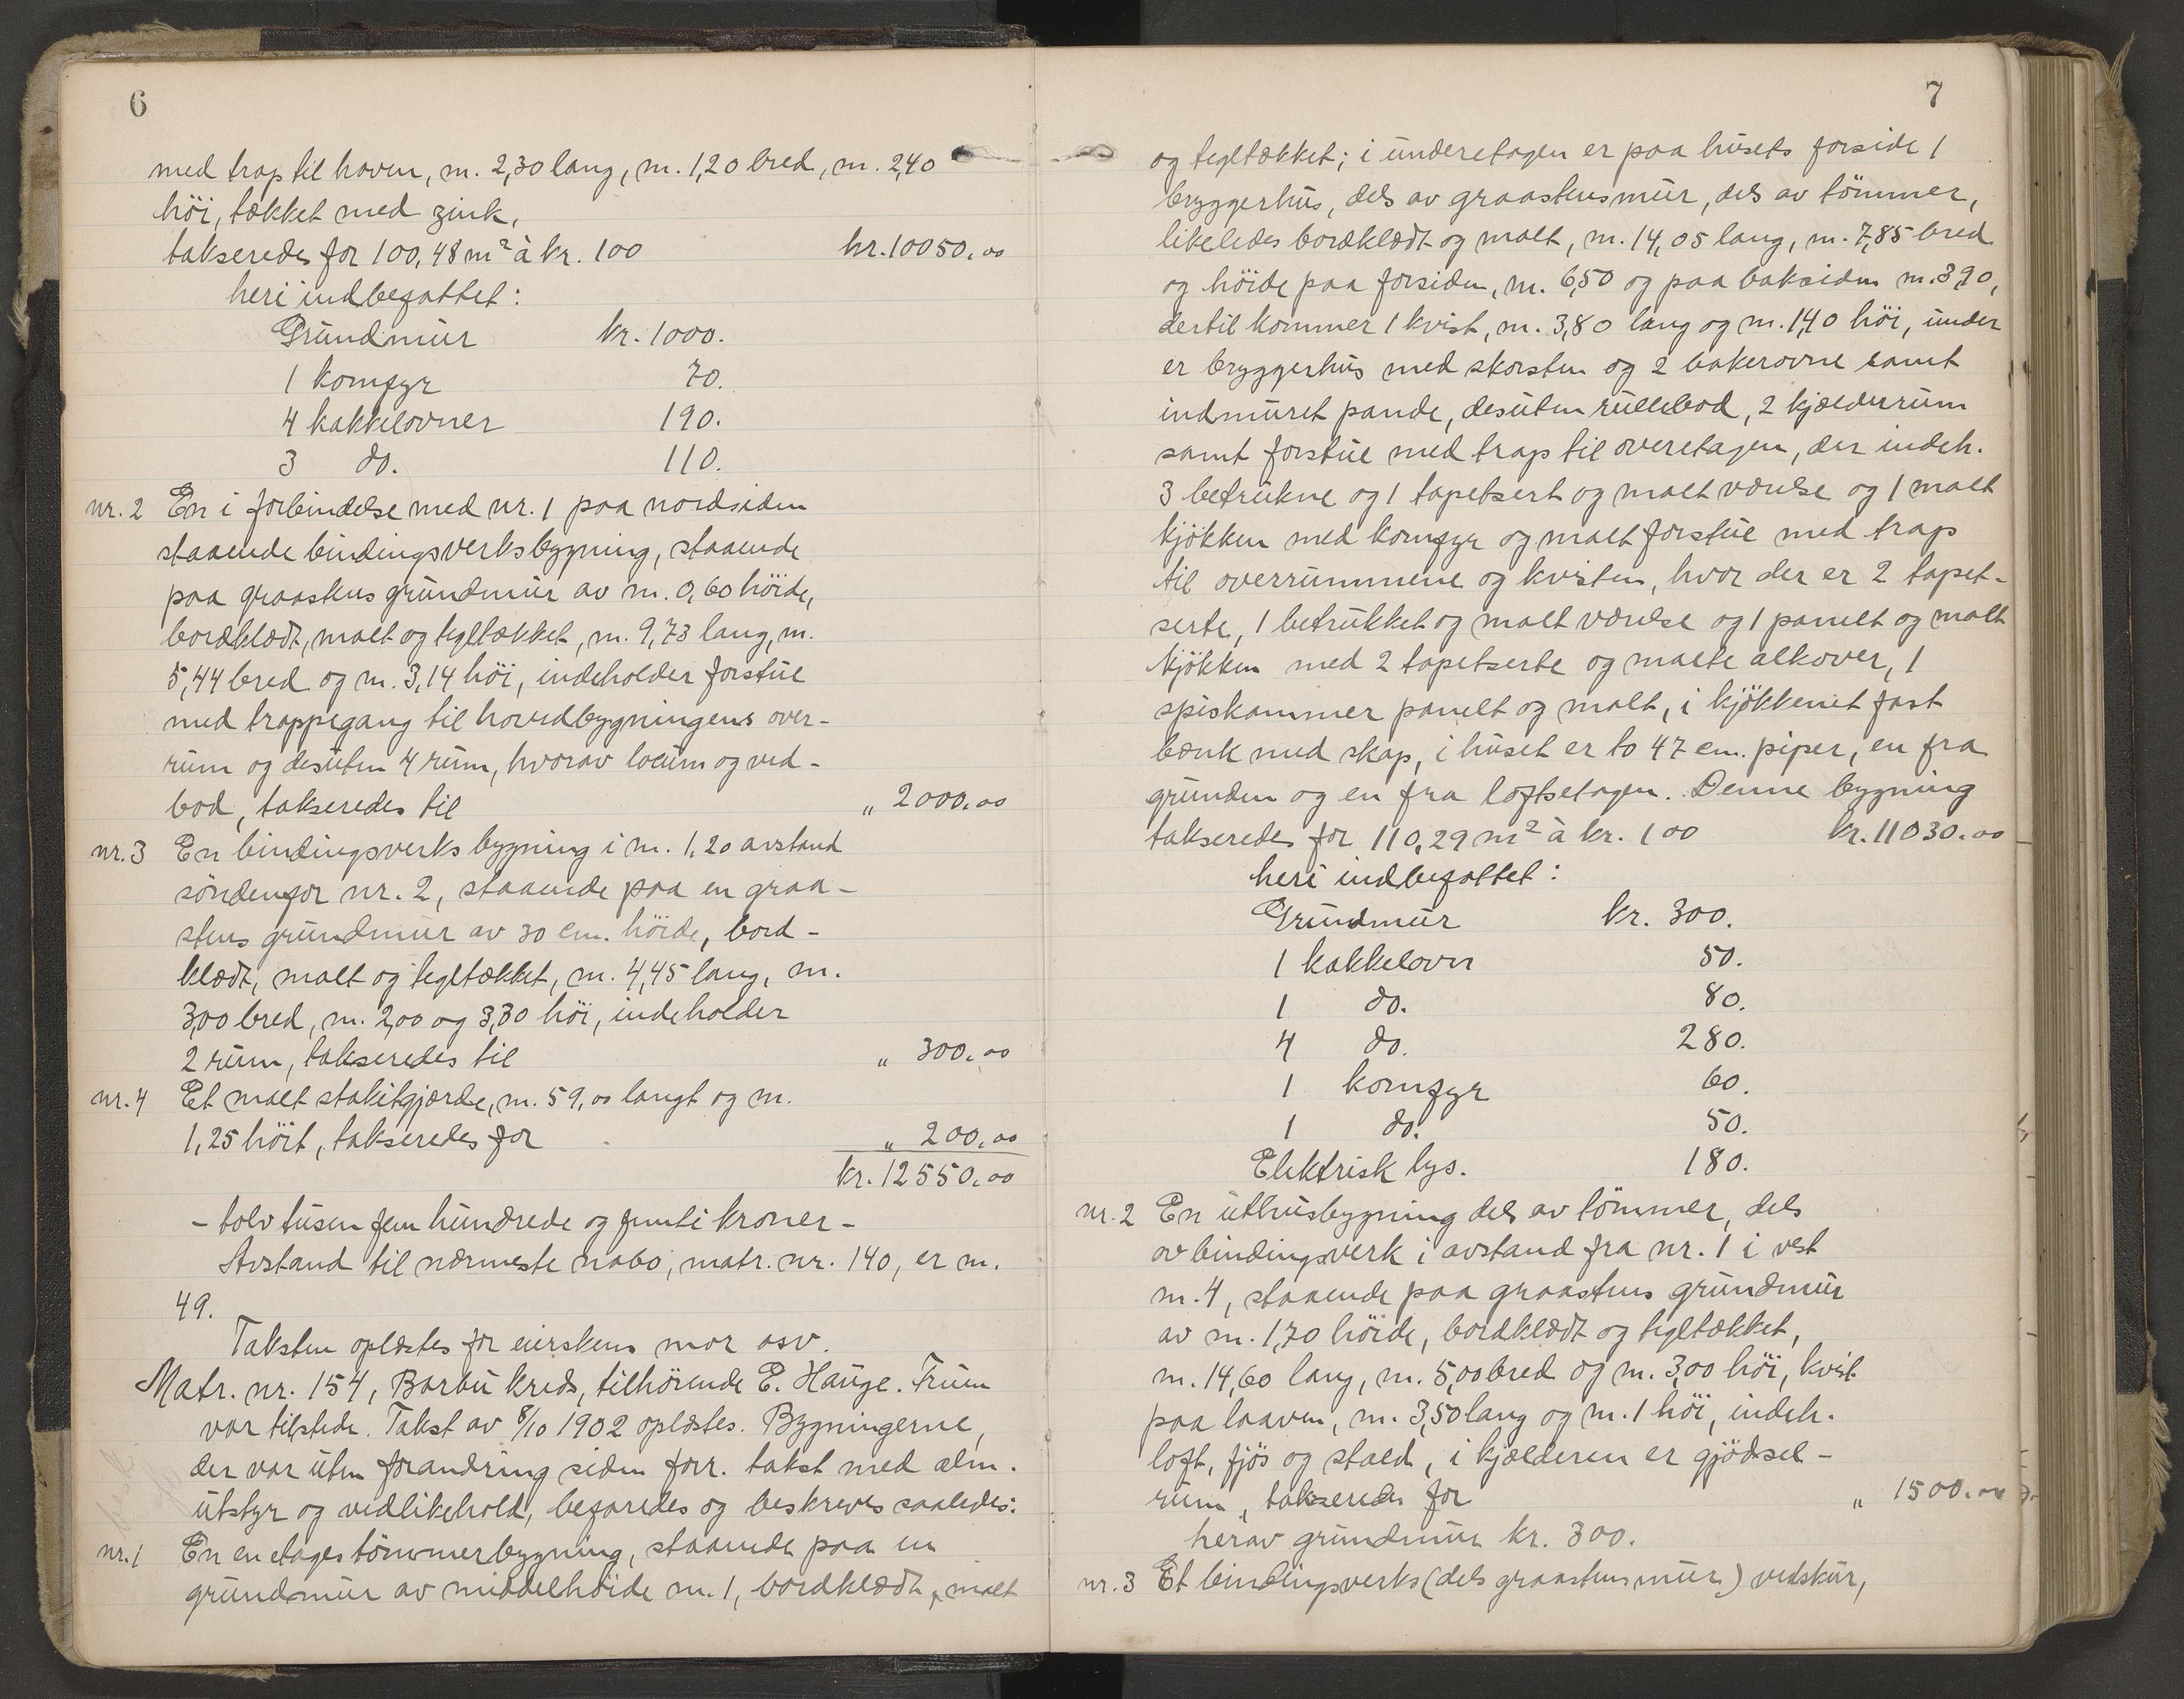 6
med trap til haven, m. 2,30 lang, m. 1,20 bred, m. 2,40
höi, tækket med zink,
takseredes for 100,48 m² à kr. 100 kr. 10050,00
heri indbefattet:
Grundmur kr. 1000.
1 komfyr 70.
4 kakkelovner 190.
3 do. 110.
nr. 2 En i forbindelse med nr. 1 paa nordsiden
staaende bindingsverksbygning, staaende
paa graastens grundmur av m. 0,60 höide,
bordklædt, malt og tegltækket, m. 9,73 lang, m.
5,44 bred og m. 3,14 höi, indeholder forstue
med trappegang til hovedbygningens over-
rum og desuten 4 rum, hvorav locum og ved-
bod, takseredes til " 2000,00
nr. 3 En bindingsverks bygning i m. 1,20 avstand
söndenfor nr. 2, staaende paa en graa-
stens grundmur av 30 cm. höide, bord-
klædt, malt og tegltækket, m. 4,45 lang, m.
3,00 bred, m. 2,00 og 3,30 höi, indeholder
2 rum, takseredes til " 300,00
nr. 4 Et malt stakitgjærde, m. 59,00 langt og m.
1,25 höit, takseredes for " 200,00
kr. 12550,00
- tolv tusen fem hundrede og femti kroner -
Avstand til nærmeste nabo, matr. nr. 140, er m.
49.
Taksten oplæstes for eierskens mor osv.
Matr. nr. 154, Barbu kreds, tilhörende E. Hauge. Fruen
var tilstede. Takst av 8/10 1902 oplæstes. Bygningerne,
der var uten forandring siden forr. takst med alm.
utstyr og vedlikehold, befaredes og beskreves saaledes:
nr. 1 En en etages tömmerbygning, staaende paa en
grundmur av middelhöide m. 1, bordklædt, malt
7
og tegltækket; i underetagen er paa husets forside 1
bryggerhus, dels av graastensmur, dels av tömmer,
likeledes bordklædt og malt, m. 14,05 lang, m. 7,85 bred
og höide paa forsiden, m. 6,50 og paa baksiden m. 3,90,
dertil kommer 1 kvist, m. 3,80 lang og m. 1,40 höi, under
er bryggerhus med skorsten og 2 bakerovne samt
indmuret pande, desuten rullebod, 2 kjælderrum
samt forstue med trap til overetagen, der indeh.
3 betrukne og 1 tapetsert og malt værelse og 1 malt
kjökken med komfyr og malt forstue med trap
til overrummene og kvisten, hvor der er 2 tapet-
serte, 1 betrukket og malt værelse og 1 panelt og malt
kjökken med 2 tapetserte og malte alkover, 1
spiskammer panelt og malt, i kjökkenet fast
bænk med skap, i huset er to 47 cm. piper, en fra
grunden og en fra loftsetagen. Denne bygning
takseredes for 110,29 m² à kr. 100 kr. 11030,00
heri indbefattet:
Grundmur kr. 300.
1 kakkelovn 50.
1 do. 80.
4 do. 280.
1 komfyr 60.
1 do. 50.
Elektrisk lys. 180.
nr. 2 En uthusbygning dels av tömmer, dels
av bindingsverk i avstand fra nr. 1 i vest
m. 4, staaende paa graastens grundmur
av m. 1,70 höide, bordklædt og tegltækket,
m. 14,60 lang, m. 5,00 bred og m. 3,00 höi, kvist
paa laaven, m. 3,50 lang og m. 1 höi, indeh.
loft, fjös og stald, i kjælderen er gjödsel-
rum, takseredes for " 1500,00
herav grundmur kr. 300.
nr. 3 Et bindingsverks (dels graastensmur) vedskur,